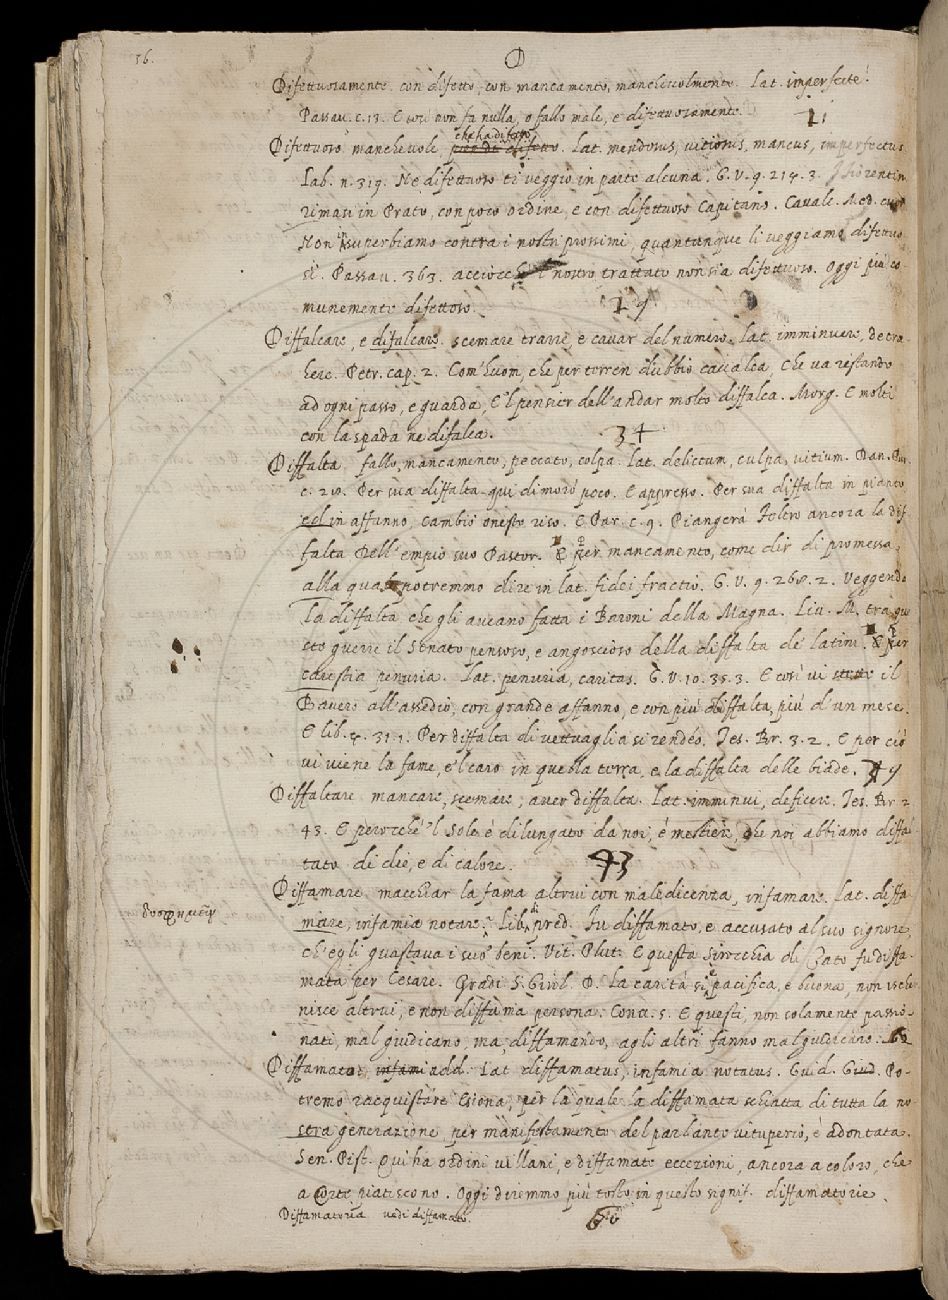 56.
D
Difettuosamente. con difetto, con mancamento, manchevolmente. Lat. imperfectè.
Passau. c. 13. E così non fa nulla, o fallo male, e difettuosamente.
11
che ha difetto
Difettuoso manchevole, pien di difetto. Lat. mendosus, vitiosus, mancus, imperfectus
Lab. n. 319. Ne difettuoso ti veggio in parte alcuna. G. V. 9. 214. 3. Fiorentin
rimasi in Prato, con poco ordine, e con difettuoso Capitano. Cavalc. Med. cuor
Non insuperbiamo contra i nostri prossimi, quantunque li veggiamo difettuo-
si. Passau. 363. acciocchè 'l nostro trattato non sia difettuoso. Oggi più co-
munemente difettoso.
19
Diffalcare, e difalcare. scemare trarre, e cavar del numero. Lat. imminuere, detra-
here. Petr. cap. 2. Com' huom, che per terren dubbio cavalca, Che va restando
ad ogni passo, e guarda, E 'l pensier dell' andar molto diffalca. Morg. E molti
con la spada ne difalca.
34
Diffalta fallo, mancamento, peccato, colpa. Lat. delictum, culpa, vitium. Dan. Pur.
c. 28. Per sua diffalta qui dimorò poco. E appresso. Per sua diffalta in pianto
ed in affanno, Cambiò onesto riso. E Par. c. 9. Piangerà Feltro ancora la dif-
falta Dell' empio suo Pastor. E per mancamento, come dir di promessa,
alla quale potremmo dire in lat. fidei fractio. G. V. 9. 268. 2. Veggendo
la diffalta che gli aveano fatta i Baroni della Magna. Liv. M. tra que
sto guerre il Senato pensoso, e angoscioso della diffalta de' latini. E per
carestia penuria. Lat. penuria, caritas. G. V. 10. 35. 3. E così vi stette il
Bavero all' assedio, con grande affanno, e con più diffalta più d' un mese.
E lib. 4. 31. 1. Per diffalta di vettuaglia si rendéo. Tes. Br. 3. 2. E per ciò
vi viene la fame, e 'l caro in quella terra, e la diffalta delle biade.
49
Diffaltare mancare, scemare, aver diffalta. Lat. imminui, deficere. Tes. Br. 2.
43. E perocchè 'l Sole è dilungato da noi, è mestiere, che noi abbiamo diffal
tato di die, e di calore.
43
Diffamare macchiar la fama altrui con maledicenza, infamare. Lat. diffa-
mare, infamia notare. Lib. di pred. Fu diffamato, e accusato al suo signore,
δυσφημεῖν
ch' egli guastava i suo' beni. Vit. Plut. E questa sirocchia di Cato fu diffa-
mata per Cesare. Gradi S. Girol. D. La carità si è pacifica, e buona, non ischer
nisce altrui, e non diffama persona. Conv. 5. E questi, non solamente passio-
nati, mal giudicano, ma, diffamando, agli altri fanno mal giudicare.
62
Diffamato. infami add. Lat. diffamatus, infamia notatus. Guid. Giud. Po-
tremo racquistare Esiona, per la quale la diffamata schiatta di tutta la no-
stra generazione per manifestamento del parlante vituperio, è adontata.
Sen. Pist. Qui ha ordini villani, e diffamate eccezioni, ancora a coloro, che
a Corte piatiscono. Oggi diremmo più tosto in questo signif. diffamatorie.
Diffamatoria vedi diffamato.